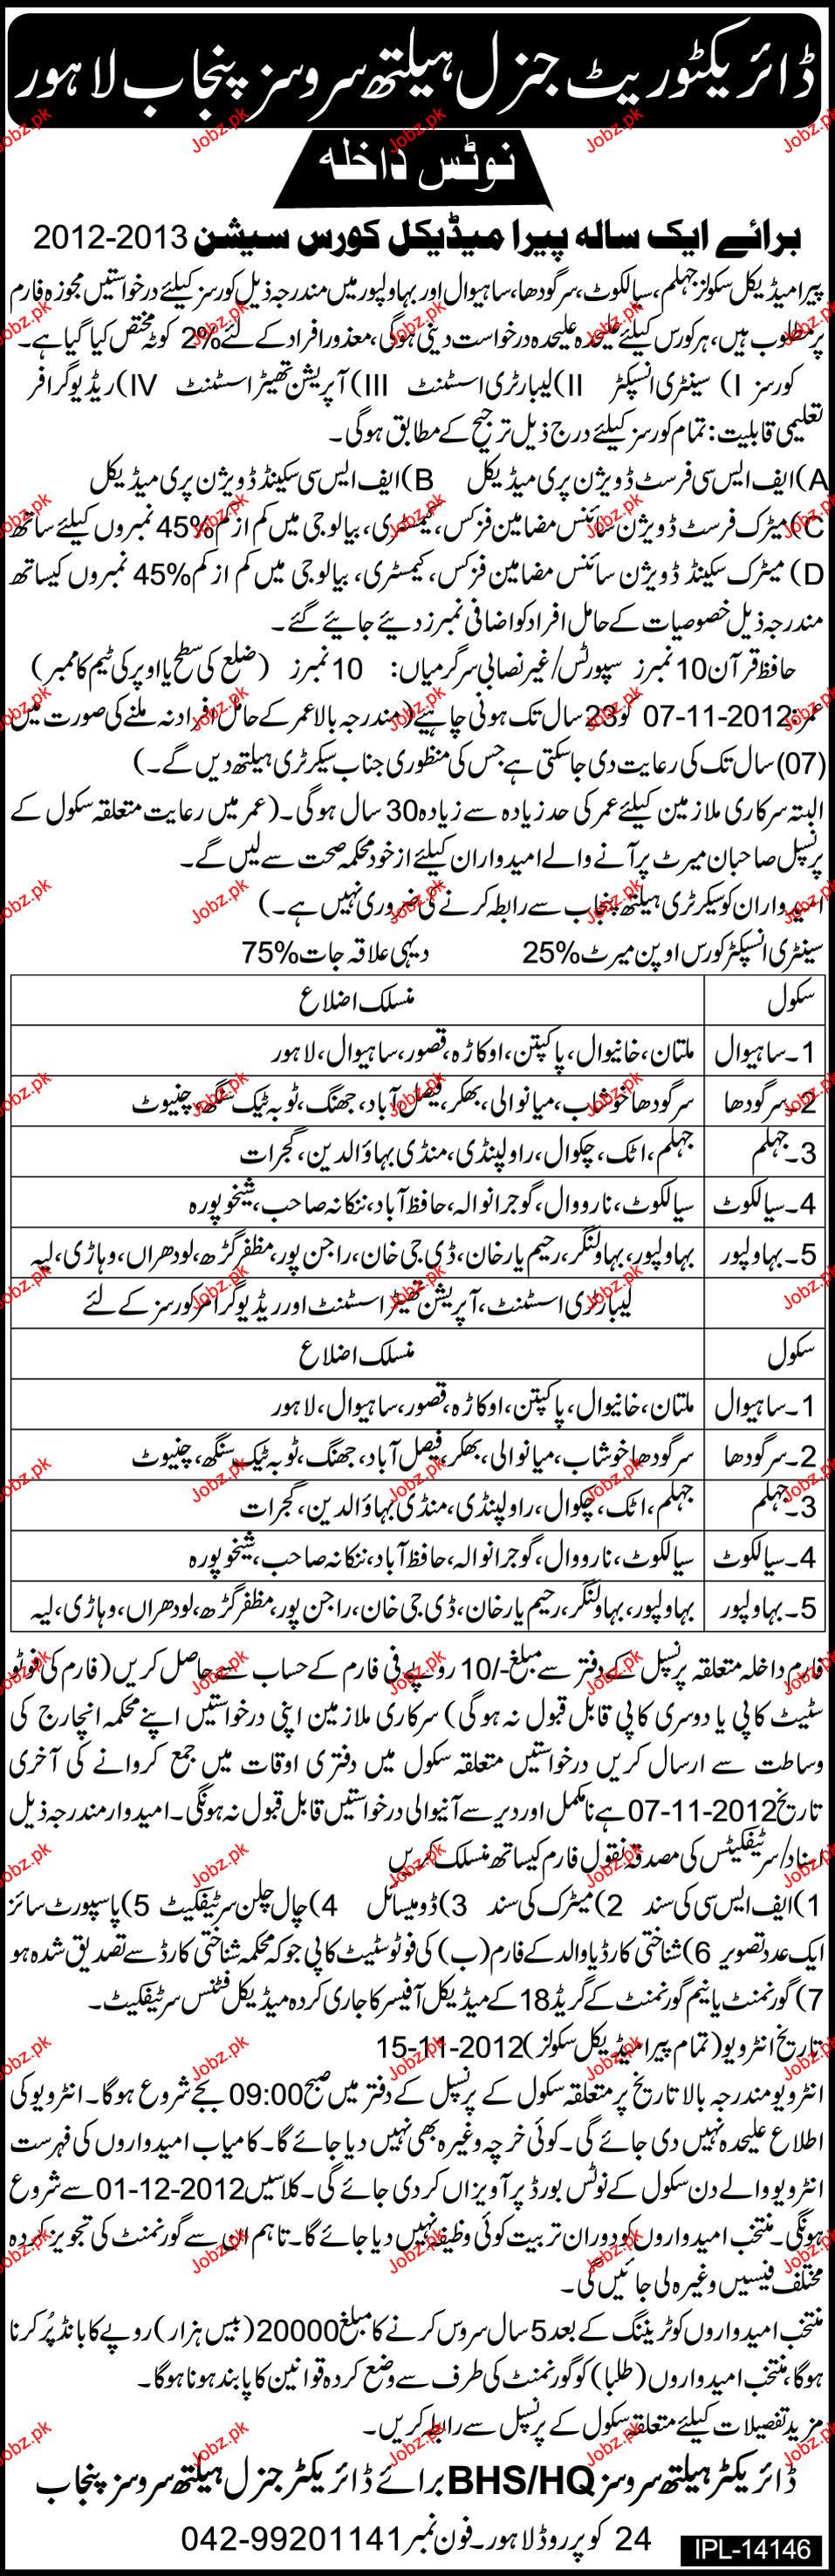 ڈائریکٹوریٹ جنرل ہیلتھ سروسز پنجاب لاہور
نوٹس داخلہ
برائے ایک سالہ پیرا میڈیکل کورس سیشن 2012-2013
پیرا میڈیکل سکولز جہلم، سیالکوٹ، سرگودھا، ساہیوال اور بہاولپور میں مندرجہ ذیل کورسز کیلئے درخواستیں مجوزہ فارم
پر مطلوب ہیں، ہر کورس کیلئے علیحدہ علیحدہ درخواست دینی ہوگی، معذور افراد کے لئے 2% کوٹہ مختص کیا گیا ہے۔
کورسز I) سینٹری انسپکٹر II) لیبارٹری اسسٹنٹ III) آپریشن تھیٹر اسسٹنٹ IV) ریڈیوگرافر
تعلیمی قابلیت: تمام کورسز کیلئے درج ذیل ترجیح کے مطابق ہوگی۔
A) ایف ایس سی فرسٹ ڈویژن پری میڈیکل B) ایف ایس سی سکینڈ ڈویژن پری میڈیکل
C) میٹرک فرسٹ ڈویژن سائنس مضامین فزکس، کیمسٹری، بیالوجی میں کم از کم 45% نمبروں کیلئے ساتھ
D) میٹرک سکینڈ ڈویژن سائنس مضامین فزکس، کیمسٹری، بیالوجی میں کم از کم 45% نمبروں کیساتھ
مندرجہ ذیل خصوصیات کے حامل افراد کو اضافی نمبرز دیئے جایئے گئے۔
حافظ قرآن 10 نمبرز سپورٹس/غیر نصابی سرگرمیاں: 10 نمبرز (ضلع کی سطح یا اوپر کی ٹیم کا ممبر)
عمر: 07-11-2012 کو 23 سال تک ہونی چاہیے (مندرجہ بالا عمر کے حامل افراد نہ ملنے کی صورت میں
(07) سال تک کی رعایت دی جاسکتی ہے جس کی منظوری جناب سیکرٹری ہیلتھ دیں گے۔)
البتہ سرکاری ملازمین کیلئے عمر کی حد زیادہ سے زیادہ 30 سال ہوگی۔ (عمر میں رعایت متعلقہ سکول کے
پرنسپل صاحبان میرٹ پر آنے والے امیدواران کیلئے از خود محکمہ صحت سے لیں گے۔
امیدواران کو سیکرٹری ہیلتھ پنجاب سے رابطہ کرنے کی ضروری نہیں ہے۔)
سینٹری انسپکٹر کورس اوپن میرٹ 25% دیہی علاقہ جات 75%
سکول منسلک اضلاع
1۔ساہیوال ملتان، خانیوال، پاکپتن، اوکاڑہ، قصور، ساہیوال، لاہور
2۔سرگودھا سرگودھا خوشاب، میانوالی، بھکر، فیصل آباد، جھنگ، ٹوبہ ٹیک سنگھ، چنیوٹ
3۔جہلم جہلم، اٹک، چکوال، راولپنڈی، منڈی بہاؤالدین، گجرات
4۔سیالکوٹ سیالکوٹ، نارووال، گوجرانوالہ، حافظ آباد، ننکانہ صاحب، شیخوپورہ
5۔بہاولپور بہاولپور، بہاولنگر، رحیم یار خان، ڈی جی خان، راجن پور، مظفرگڑھ، لودھراں، وہاڑی، لیہ
لیبارٹری اسسٹنٹ، آپریشن تھیٹر اسسٹنٹ اور ریڈیوگرافر کورسز کے لئے
سکول منسلک اضلاع
1۔ساہیوال ملتان، خانیوال، پاکپتن، اوکاڑہ، قصور، ساہیوال، لاہور
2۔سرگودھا سرگودھا خوشاب، میانوالی، بھکر، فیصل آباد، جھنگ، ٹوبہ ٹیک سنگھ، چنیوٹ
3۔جہلم جہلم، اٹک، چکوال، راولپنڈی، منڈی بہاؤالدین، گجرات
4۔سیالکوٹ سیالکوٹ، نارووال، گوجرانوالہ، حافظ آباد، ننکانہ صاحب، شیخوپورہ
5۔بہاولپور بہاولپور، بہاولنگر، رحیم یار خان، ڈی جی خان، راجن پور، مظفرگڑھ، لودھراں، وہاڑی، لیہ
فارم داخلہ متعلقہ پرنسپل کے دفتر سے مبلغ -/10 روپے فی فارم کے حساب سے حاصل کریں (فارم کی فوٹو
سٹیٹ کاپی یا دوسری کاپی قابل قبول نہ ہوگی) سرکاری ملازمین اپنی درخواستیں اپنے محکمہ انچارج کی
وساطت سے ارسال کریں درخواستیں متعلقہ سکول میں دفتری اوقات میں جمع کروانے کی آخری
تاریخ 07-11-2012 ہے نامکمل اور دیر سے آنیوالی درخواستیں قابل قبول نہ ہونگی۔ امیدوار مندرجہ ذیل
اسناد/سرٹیفکیٹس کی مصدقہ نقول فارم کیساتھ منسلک کریں
1) ایف ایس سی کی سند 2) میٹرک کی سند 3) ڈومیسائل 4) چال چلن سرٹیفکیٹ 5) پاسپورٹ سائز
ایک عدد تصویر 6) شناختی کارڈ یا والد کے فارم (ب) کی فوٹوسٹیٹ کاپی جو کہ محکمہ شناختی کارڈ سے تصدیق شدہ ہو
7) گورنمنٹ یا نیم گورنمنٹ کے گریڈ 18 کے میڈیکل آفیسر کا جاری کردہ میڈیکل فٹنس سرٹیفکیٹ۔
تاریخ انٹرویو (تمام پیرا میڈیکل سکولز) 15-11-2012
انٹرویو مندرجہ بالا تاریخ پر متعلقہ سکول کے پرنسپل کے دفتر میں صبح 09:00 بجے شروع ہوگا۔ انٹرویو کی
اطلاع علیحدہ نہیں دی جائے گی۔ کوئی خرچہ وغیرہ بھی نہیں دیا جائے گا۔ کامیاب امیدواروں کی فہرست
انٹرویو والے دن سکول کے نوٹس بورڈ پر آویزاں کردی جائے گی۔ کلاسیں 01-12-2012 سے شروع
ہونگی۔ منتخب امیدواروں کو دوران تربیت کوئی وظیفہ نہیں دیا جائے گا۔ تاہم ان سے گورنمنٹ کی تجویز کردہ
مختلف فیسیں وغیرہ لی جائیں گی۔
منتخب امیدواروں کو ٹریننگ کے بعد 5 سال سروس کرنے کا مبلغ 20000 (بیس ہزار) روپے کا بانڈ پُر کرنا
ہوگا، منتخب امیدواروں (طلبا) کو گورنمنٹ کی طرف سے وضع کردہ قوانین کا پابند ہونا ہوگا۔
مزید تفصیلات کیلئے متعلقہ سکول کے پرنسپل سے رابطہ کریں۔
ڈائریکٹر ہیلتھ سروسز BHS/HQ برائے ڈائریکٹر جنرل ہیلتھ سروسز پنجاب
24 کوپر روڈ لاہور۔ فون نمبر 042-99201141
IPL-14146